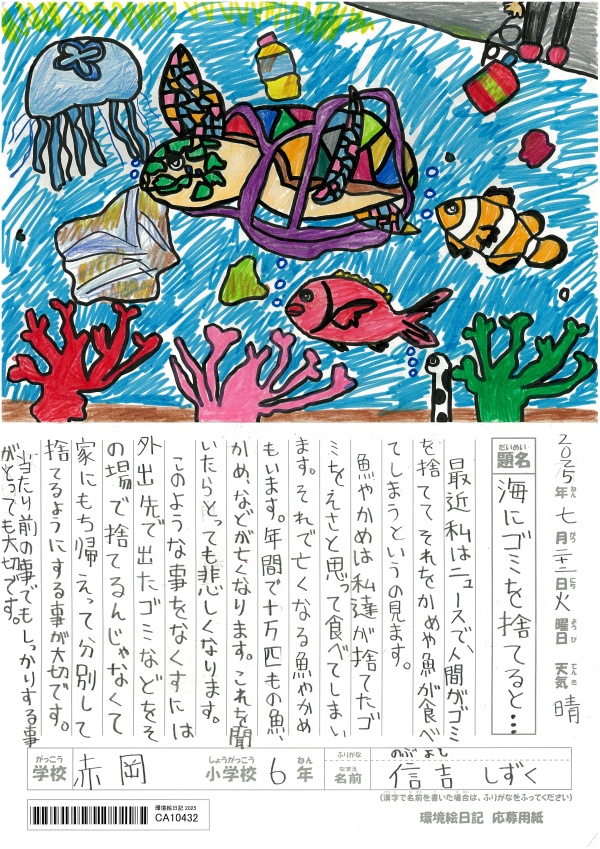 2025年七月二十二日火曜日 天気晴
ねん がつ にち ようび てんき
だいめい
題名 海にゴミを捨てると…
最近私はニュースで、人間がゴミ
を捨ててそれをかめや魚が食べ
てしまうというの見ます。
魚やかめは私達が捨てたゴ
ミをえさと思って食べてしまい
ます。それで亡くなる魚やかめ
もいます。年間で十万匹もの魚、
かめ、などが亡くなります。これを聞
いたらとっても悲しくなります。
このような事をなくすには
外出先で出たゴミなどをそ
の場で捨てるんじゃなくて
家にもち帰えって分別して
捨てるようにする事が大切です。
当たり前の事でもしっかりする事
がとっても大切です。
がっこう しょうがっこう ねん ふりがな のぶよし
学校 赤岡 小学校 6年 なまえ 名前 信吉 しずく
(漢字で名前を書いた場合は、ふりがなをふってください)
環境絵日記 2025
CA10432
環境絵日記 応募用紙